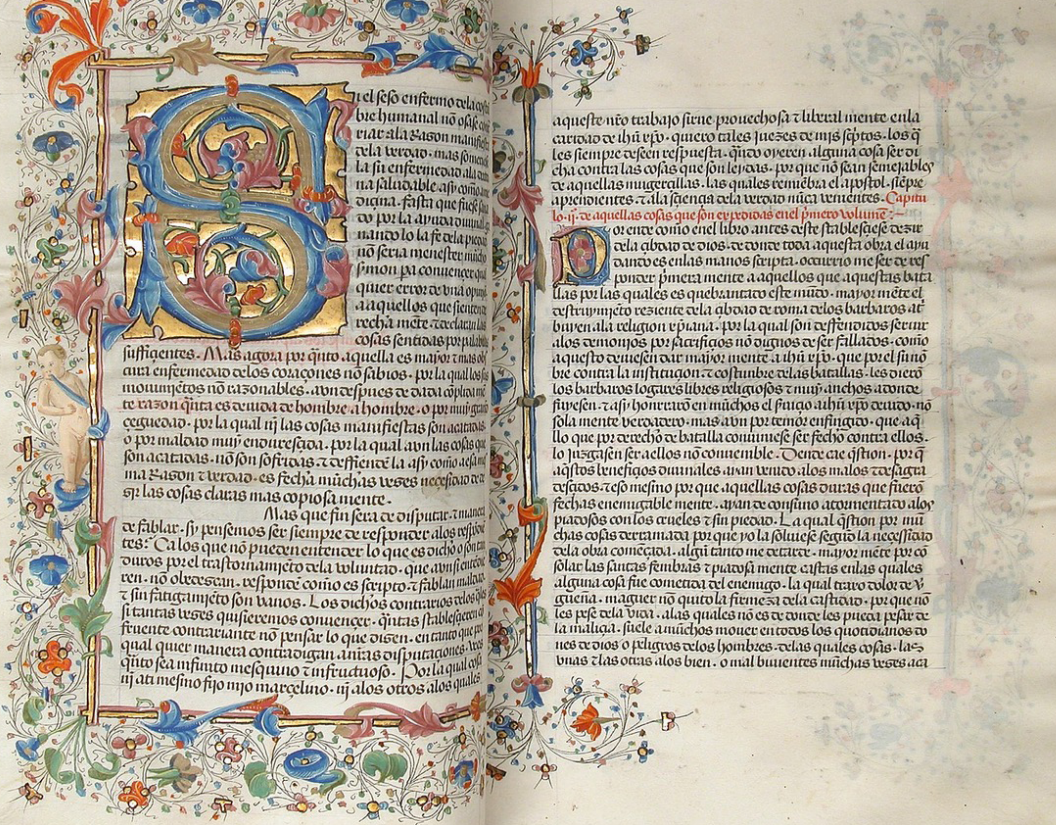 Si el seso enfermo dela costũ
bre humanal nõ osase con
riar ala Razon manifiesta
dela verdad · mas sometiese
la su enfermedad ala
na saludable asy como ame
diçina · fasta que fuese
do por la ayuda diuinal
mando lo la fe dela piedad
nõ seria menester mucho
simon pa convençer qual
quier error de vna opiniõ
a aquellos que sienten
recha mẽte τ declaran las
cosas sentidas por palabras
suffiçientes · Mas agora por quãto aquella es mayor τ mas obs
cura enfermedad delos coraçones nõ sabios · por la qual los sus
mouimjẽtos nõ razonables · avn despues de dada cõplida mẽ
te razon quãta es deuida de hombre a hombre · o por muy grand
çeguedad · por la qual nj las cosas manifiestas son acatadas
o por maldad muy enduresçida · por la qual avn las cosas que
son acatadas · nõ son sofridas τ deffiende la asy como a esa mes
ma Razon τ verdad · es fecha mũchas vezes neçesidad de de
zir las cosas claras mas copiosa mente ·
Mas que fin sera de disputar · τ manera
de fablar · sy pensemos ser siempre de responder alos respõdiẽ
tes · Ca los que nõ pueden entender lo que es dicho o son tan
duros por el trastornamjẽto dela voluntad · que avnsi entiẽdẽ
ren · nõ obedezcan · respondẽ como es scripto · τ fablan maldad ·
τ sin fatigamjẽto son vanos · Los dichos contrarios delos quales
si tantas vezes quisieremos convençer · quãtas stablesçieren cõ
fruente contrariante nõ pensar lo que dizen · en tanto que por
qual quier manera contradigan a nr̃as disputaçiones · vees
quãto sea infinito mesquino τ infructuoso · Por la qual cosa
nj ati mesmo fijo mjo marçelino · nj alos otros alos quales
aqueste nr̃o trabajo sirue prouechosa τ liberal mente enla
caridad de ihũ xp̃o · quiero tales juezes de mjs sc̃ptos · los q̃
les siempre deseen respuesta · quãdo oyeren alguna cosa ser di
cha contra las cosas que son leydas · por que nõ sean semejables
de aquellas mugerçillas · las quales remiẽbra el apostol · siẽpre
aprendientes · τ ala sçiençia dela verdad nũca venientes · Capitu
lo · ij · de aquellas cosas que son expedidas enel pͥmero volumẽ :-
Por ende como enel libro antes deste stablesçiese dezir
dela çibdad de dios · de donde toda aquesta obra el ayu
dando es enlas manos scripta · occurrio me ser de res
ponder pͥmera mente a aquellos que aquestas bata
llas por las quales es quebrantado este mũdo · mayor mẽte el
destruymjẽto reziente dela çibdad de roma delos barbaros at̃
buyen ala religion xp̃iana · por la qual son deffendidos seruir
alos demonjos por sacrifiçios nõ dignos de ser fallados · como
aqueste deuiesen dar mayor mente a ihũ xp̃o · que por el su nõ
bre contra la instituçion τ costunbre delas batallas · les dierõ
los barbaros logares libres religiosos τ muy anchos adonde
fuyesen · τ asy honrrarõ en mũchos el seruiçio a ihũ xp̃o deuido · nõ
sola mente verdadero · mas avn por temor enfingido · que aq̃
llo que por derechõ de batalla conujniese ser fecho contra ellos ·
lo juzgasen ser a ellos nõ conuenible · Dende cae q̃stion · por q̃
aq̃stos benefiçios diuinales ayan venido alos malos τ desagra
desçidos · τ eso mesmo por que aquellas cosas duras que fuerõ
fechas enemigable mente · ayan de consuno atormentado alos
piadosos con los crueles τ sin piedad · La qual q̃stion por mũ
chas cosas derramada por que yo la soluiese segũd la neçessidad
dela obra começada · algũ tanto me detarde · mayor mẽte por cõ
solar las santas fembras τ piadosa mente castas enlas quales
alguna cosa fue cometida del enemigo · la qual traxo dolor de v̾
guẽña · maguer nõ quito la firmeza dela castidad · por que nõ
les pese dela vida · alas quales nõ es de donde les pueda pesar de
la maliçia · suele a mũchos mouer en todos los quotidianos do
nes de dios o peligros delos hombres · delas quales cosas · las
vnas τ las otras alos bien · o mal biuientes mũchas vezes aca